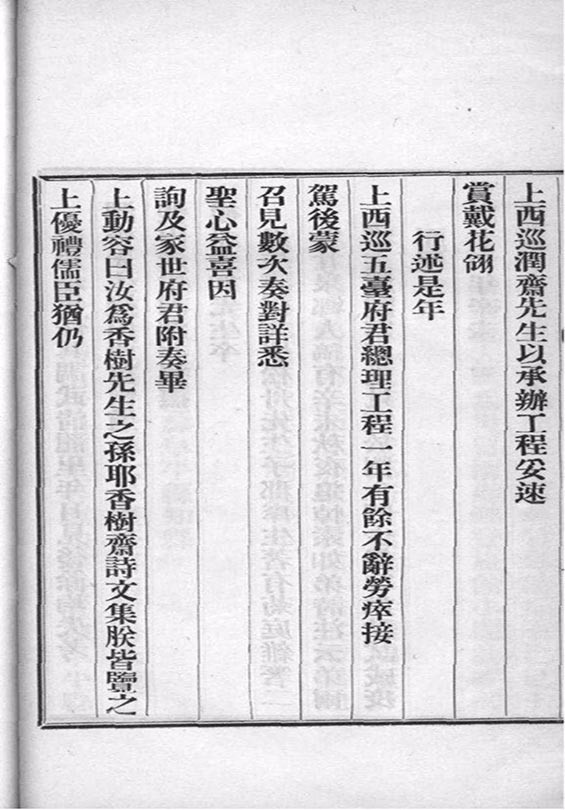 上西巡潤齋先生以承辦工程妥速
賞戴花翎
行述是年
上西巡五臺府君總理工程一年有餘不辭勞瘁接
駕後蒙
召見數次奏對詳悉
聖心益喜因
詢及家世府君附奏畢
上動容曰汝爲香樹先生之孫耶香樹齋詩文集朕皆覽之
上優禮儒臣猶仍